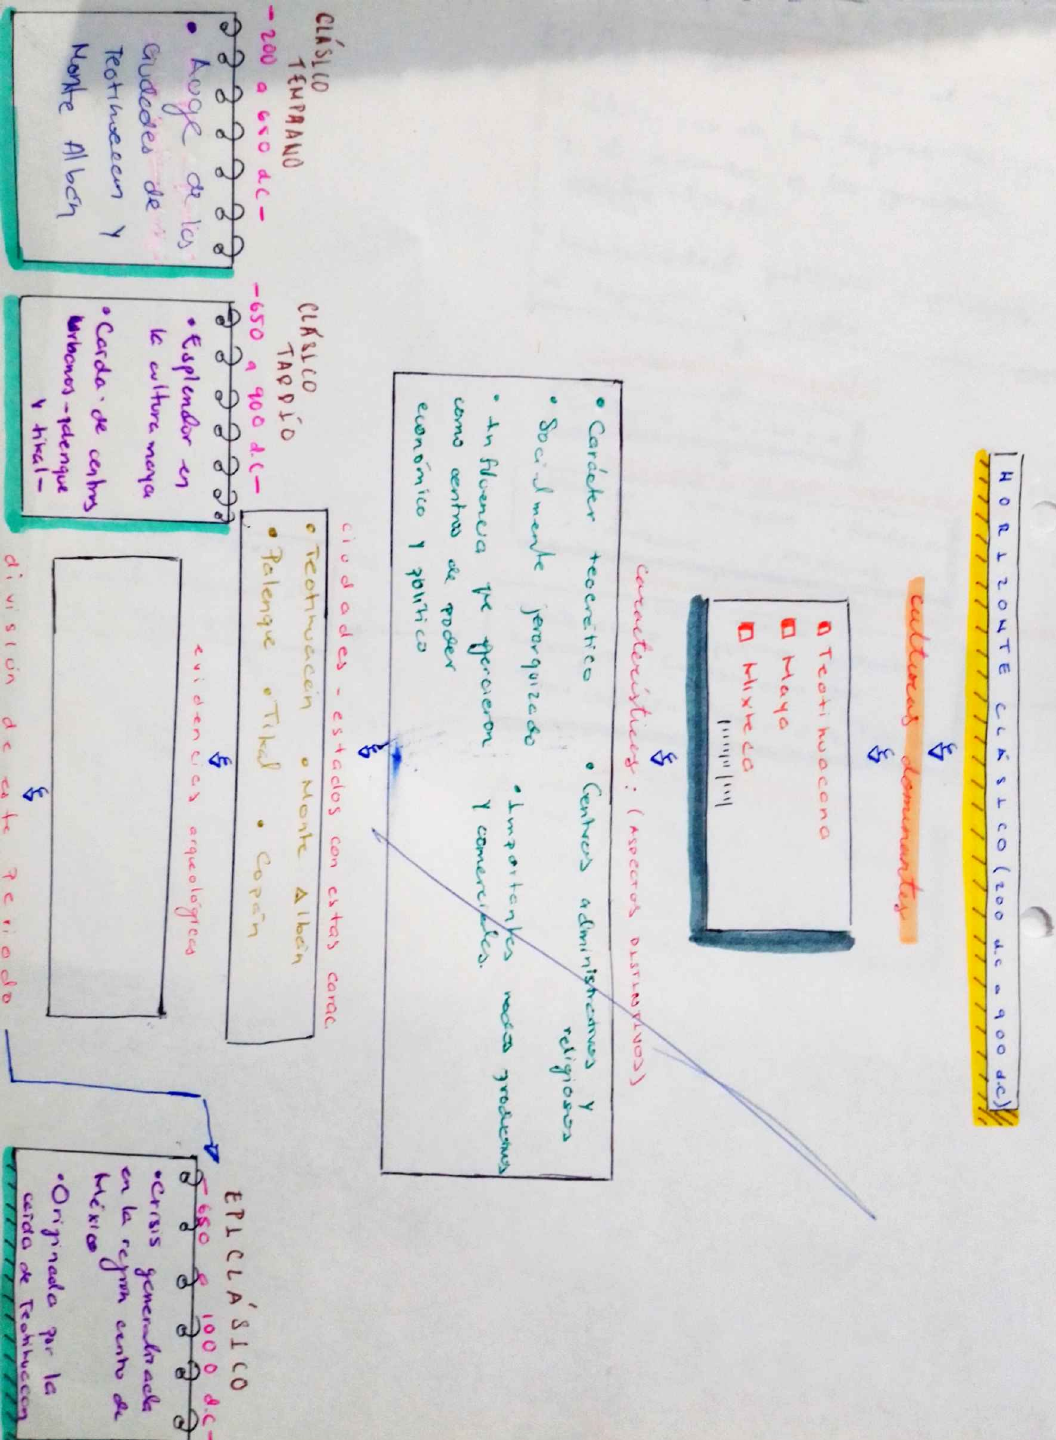 HORIZONTE CLÁSICO (200 d.c a 900 d.c)
culturas dominantes
Teotihuacana
Maya
Mixteca
características: (ASPECTOS DISTINTIVOS)
• Carácter teocrático
• Socialmente jerarquizado
• Influencia que ejercieron
como centros de poder
económico y político
• Centros administrativos y
religiosos
• Importantes nodos productivos
y comerciales.
ciudades-estados con estas carac.
• Teotihuacán • Monte Albán
• Palenque • Tikal • Copán
evidencias arqueológicas
división de este periodo
CLÁSICO
TEMPRANO
-200 a 650 d.C-
• Auge de las
ciudades de
Teotihuacan y
Monte Albán
CLÁSICO
TARDÍO
-650 a 900 d.C-
• Esplendor en
la cultura maya
• Caída de centros
urbanos-palenque
y tikal-
EPICLÁSICO
-650 a 1000 d.C-
• Crisis generalizada
en la región centro de
México
• Originada por la
caída de Teotihuacan